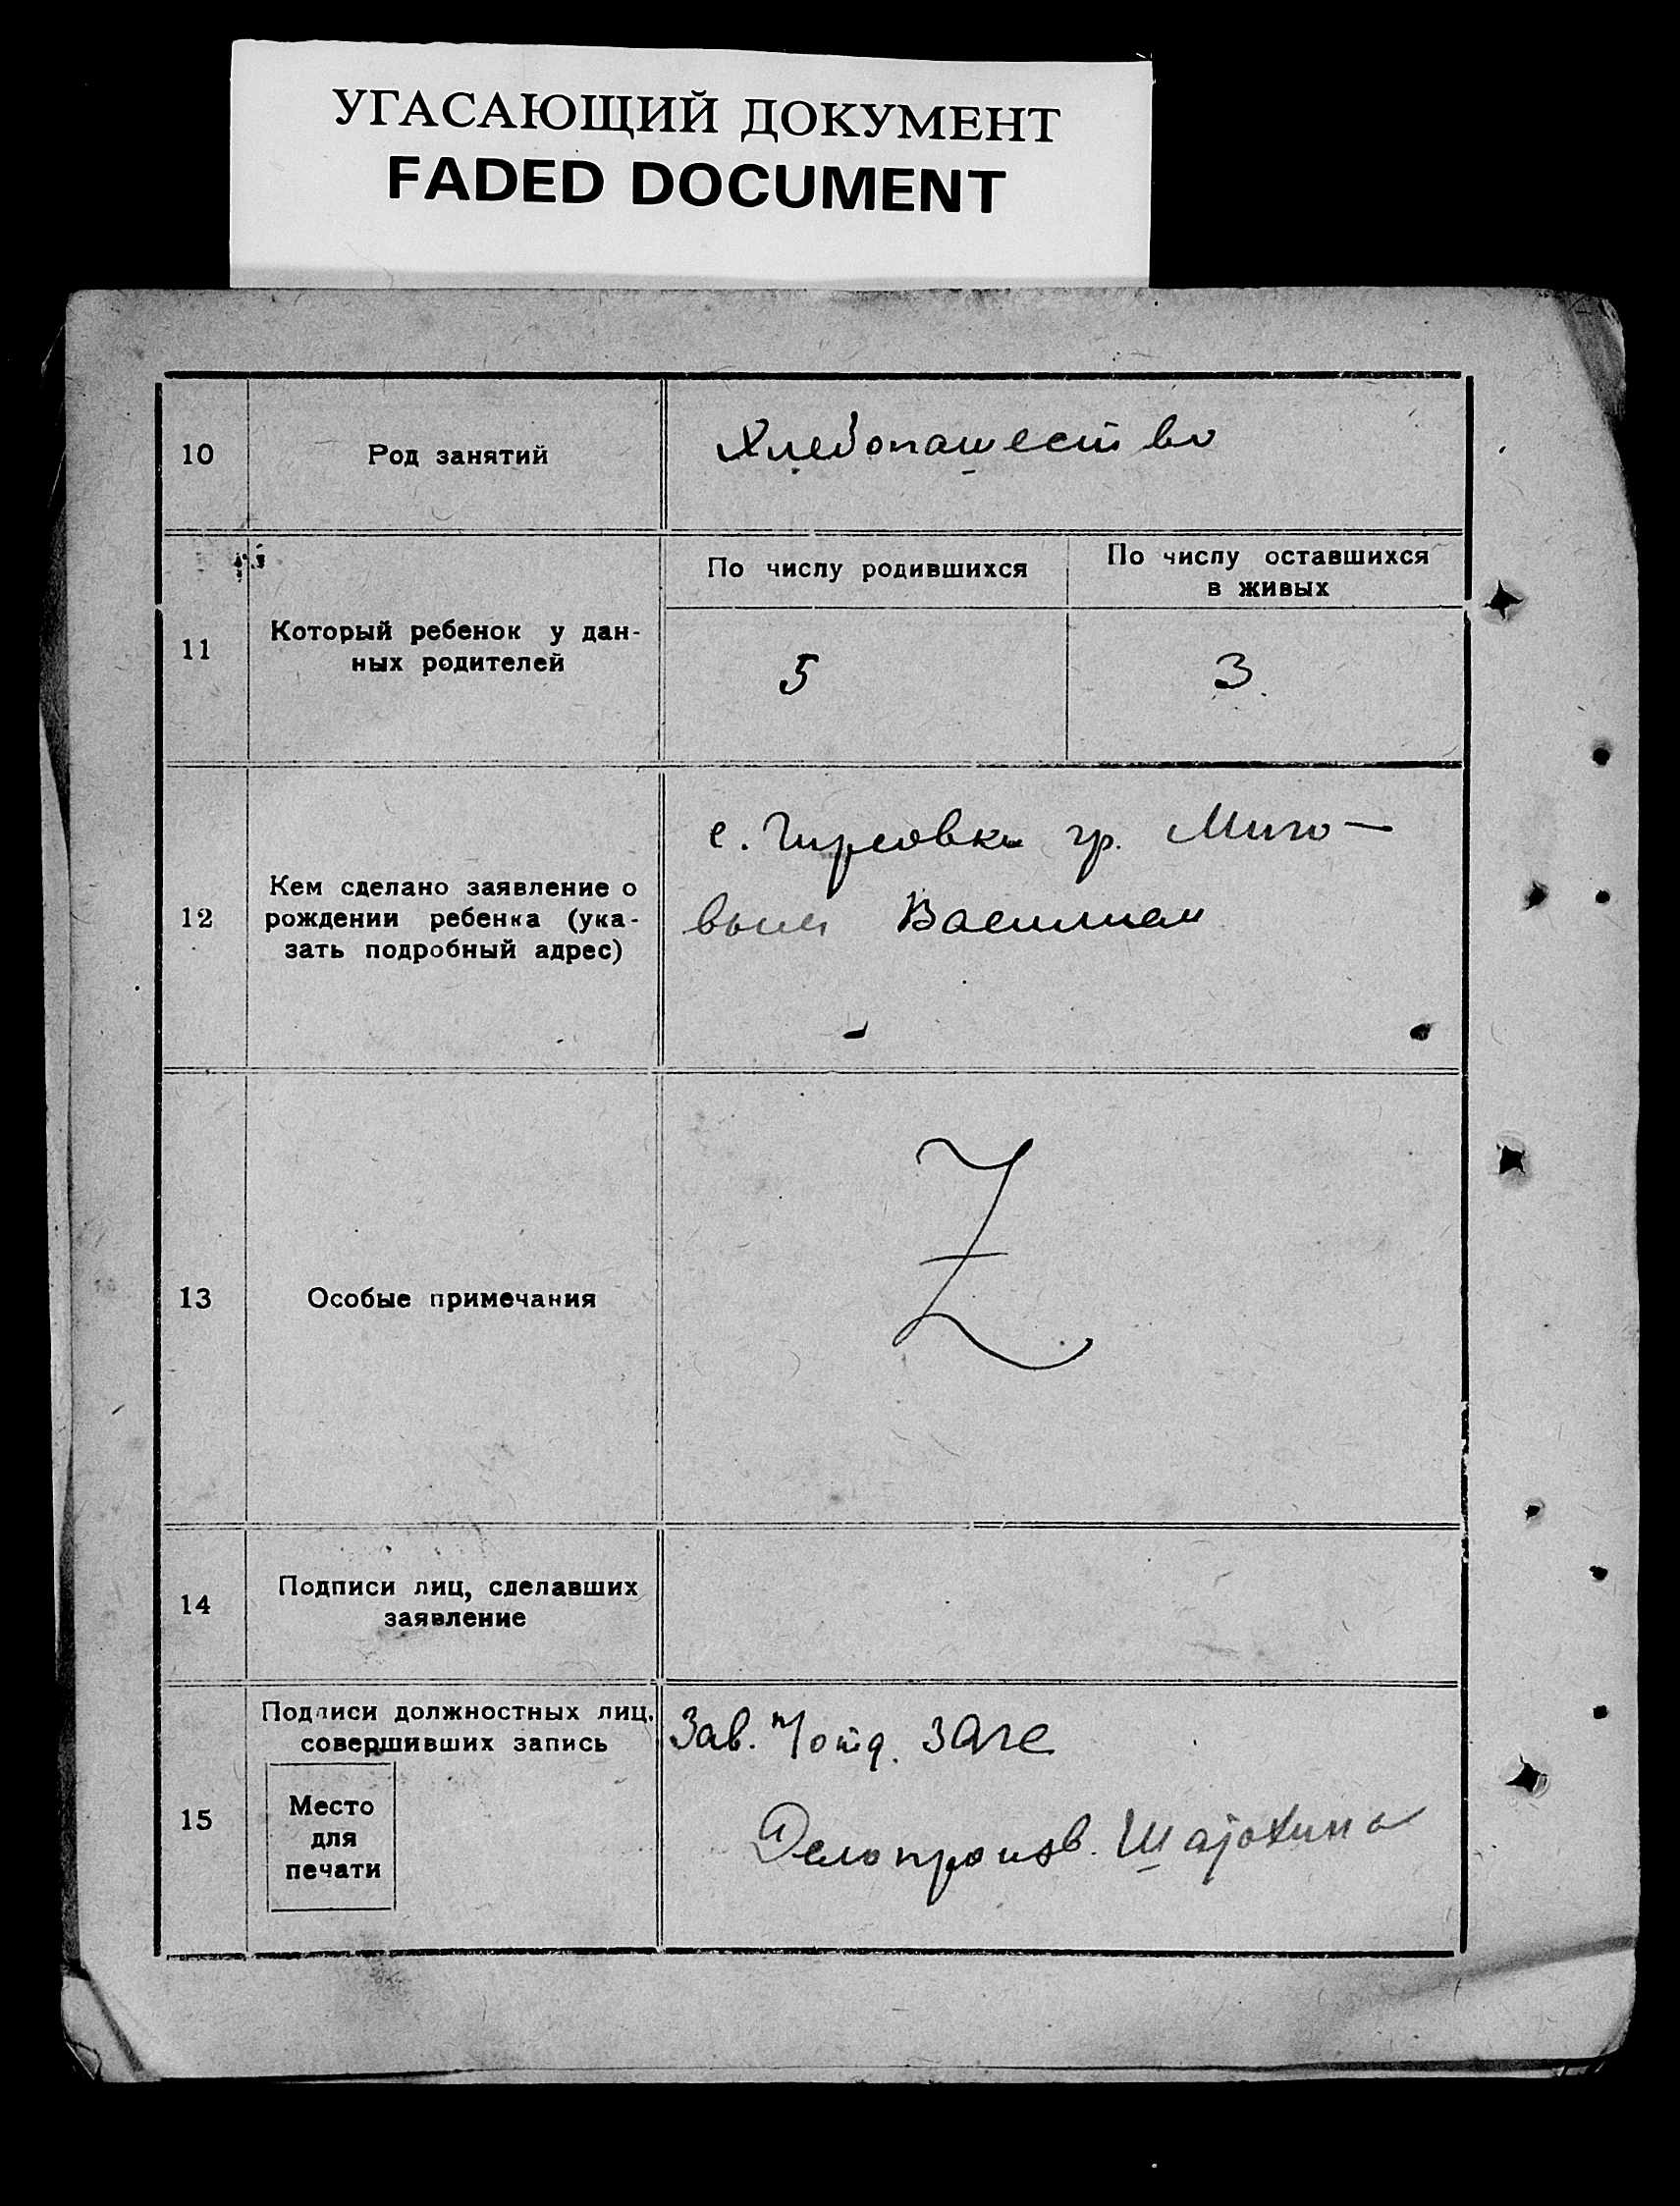 УГАСАЮЩИЙ ДОКУМЕНТ
FADED DOCUMENT
10
Род занятий
Хлебопашество
11
Который ребенок у дан-
ных родителей
По числу родившихся
По числу оставшихся
в живых
5
3
12
Кем сделано заявление о
рождении ребенка (ука-
зать подробный адрес)
с. гр.
вым Василием
13
Особые примечания
Z
14
Подписи лиц, сделавших
заявление
15
Подписи должностных лиц,
совершивших запись
Место
для
печати
Зав. п/отд. загс
Делопроизв.